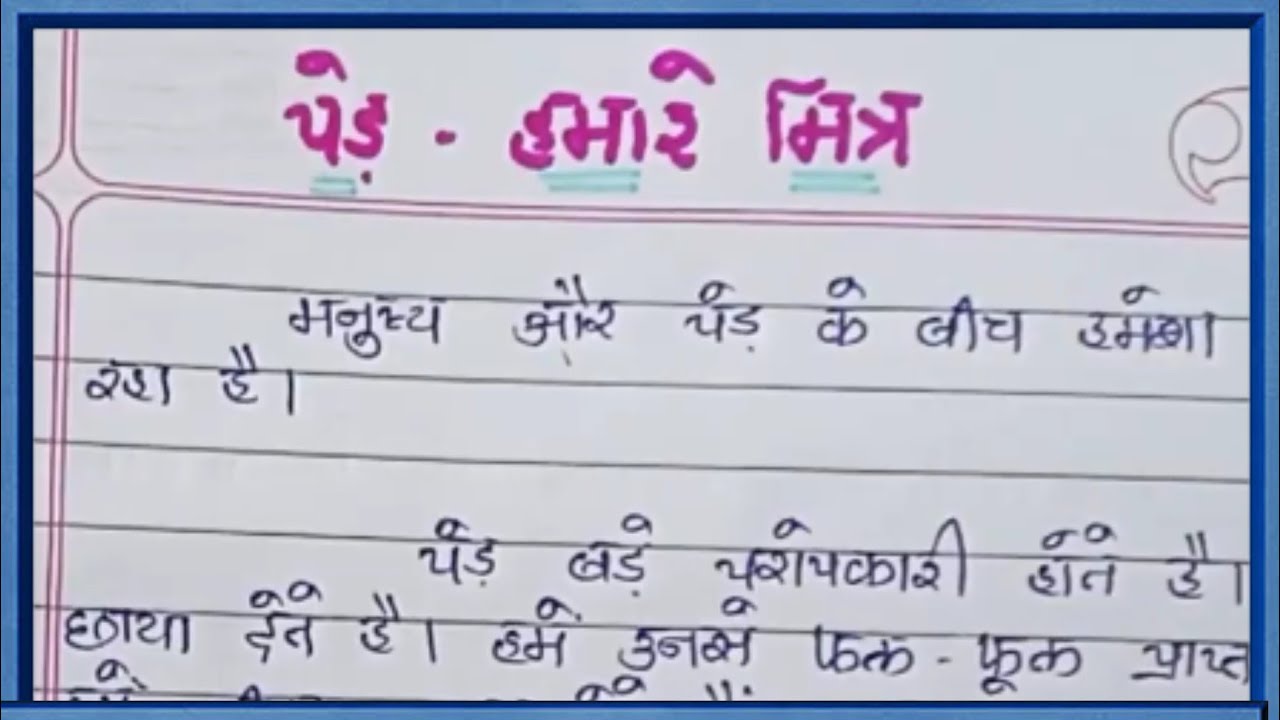 पेड़ - हमारे मित्र
मनुष्य और पेड़ के बीच हमेशा
रहा है।
पेड़ बड़े परोपकारी होते है।
छाया देते है। हमें उनसे फल - फूल प्राप्त